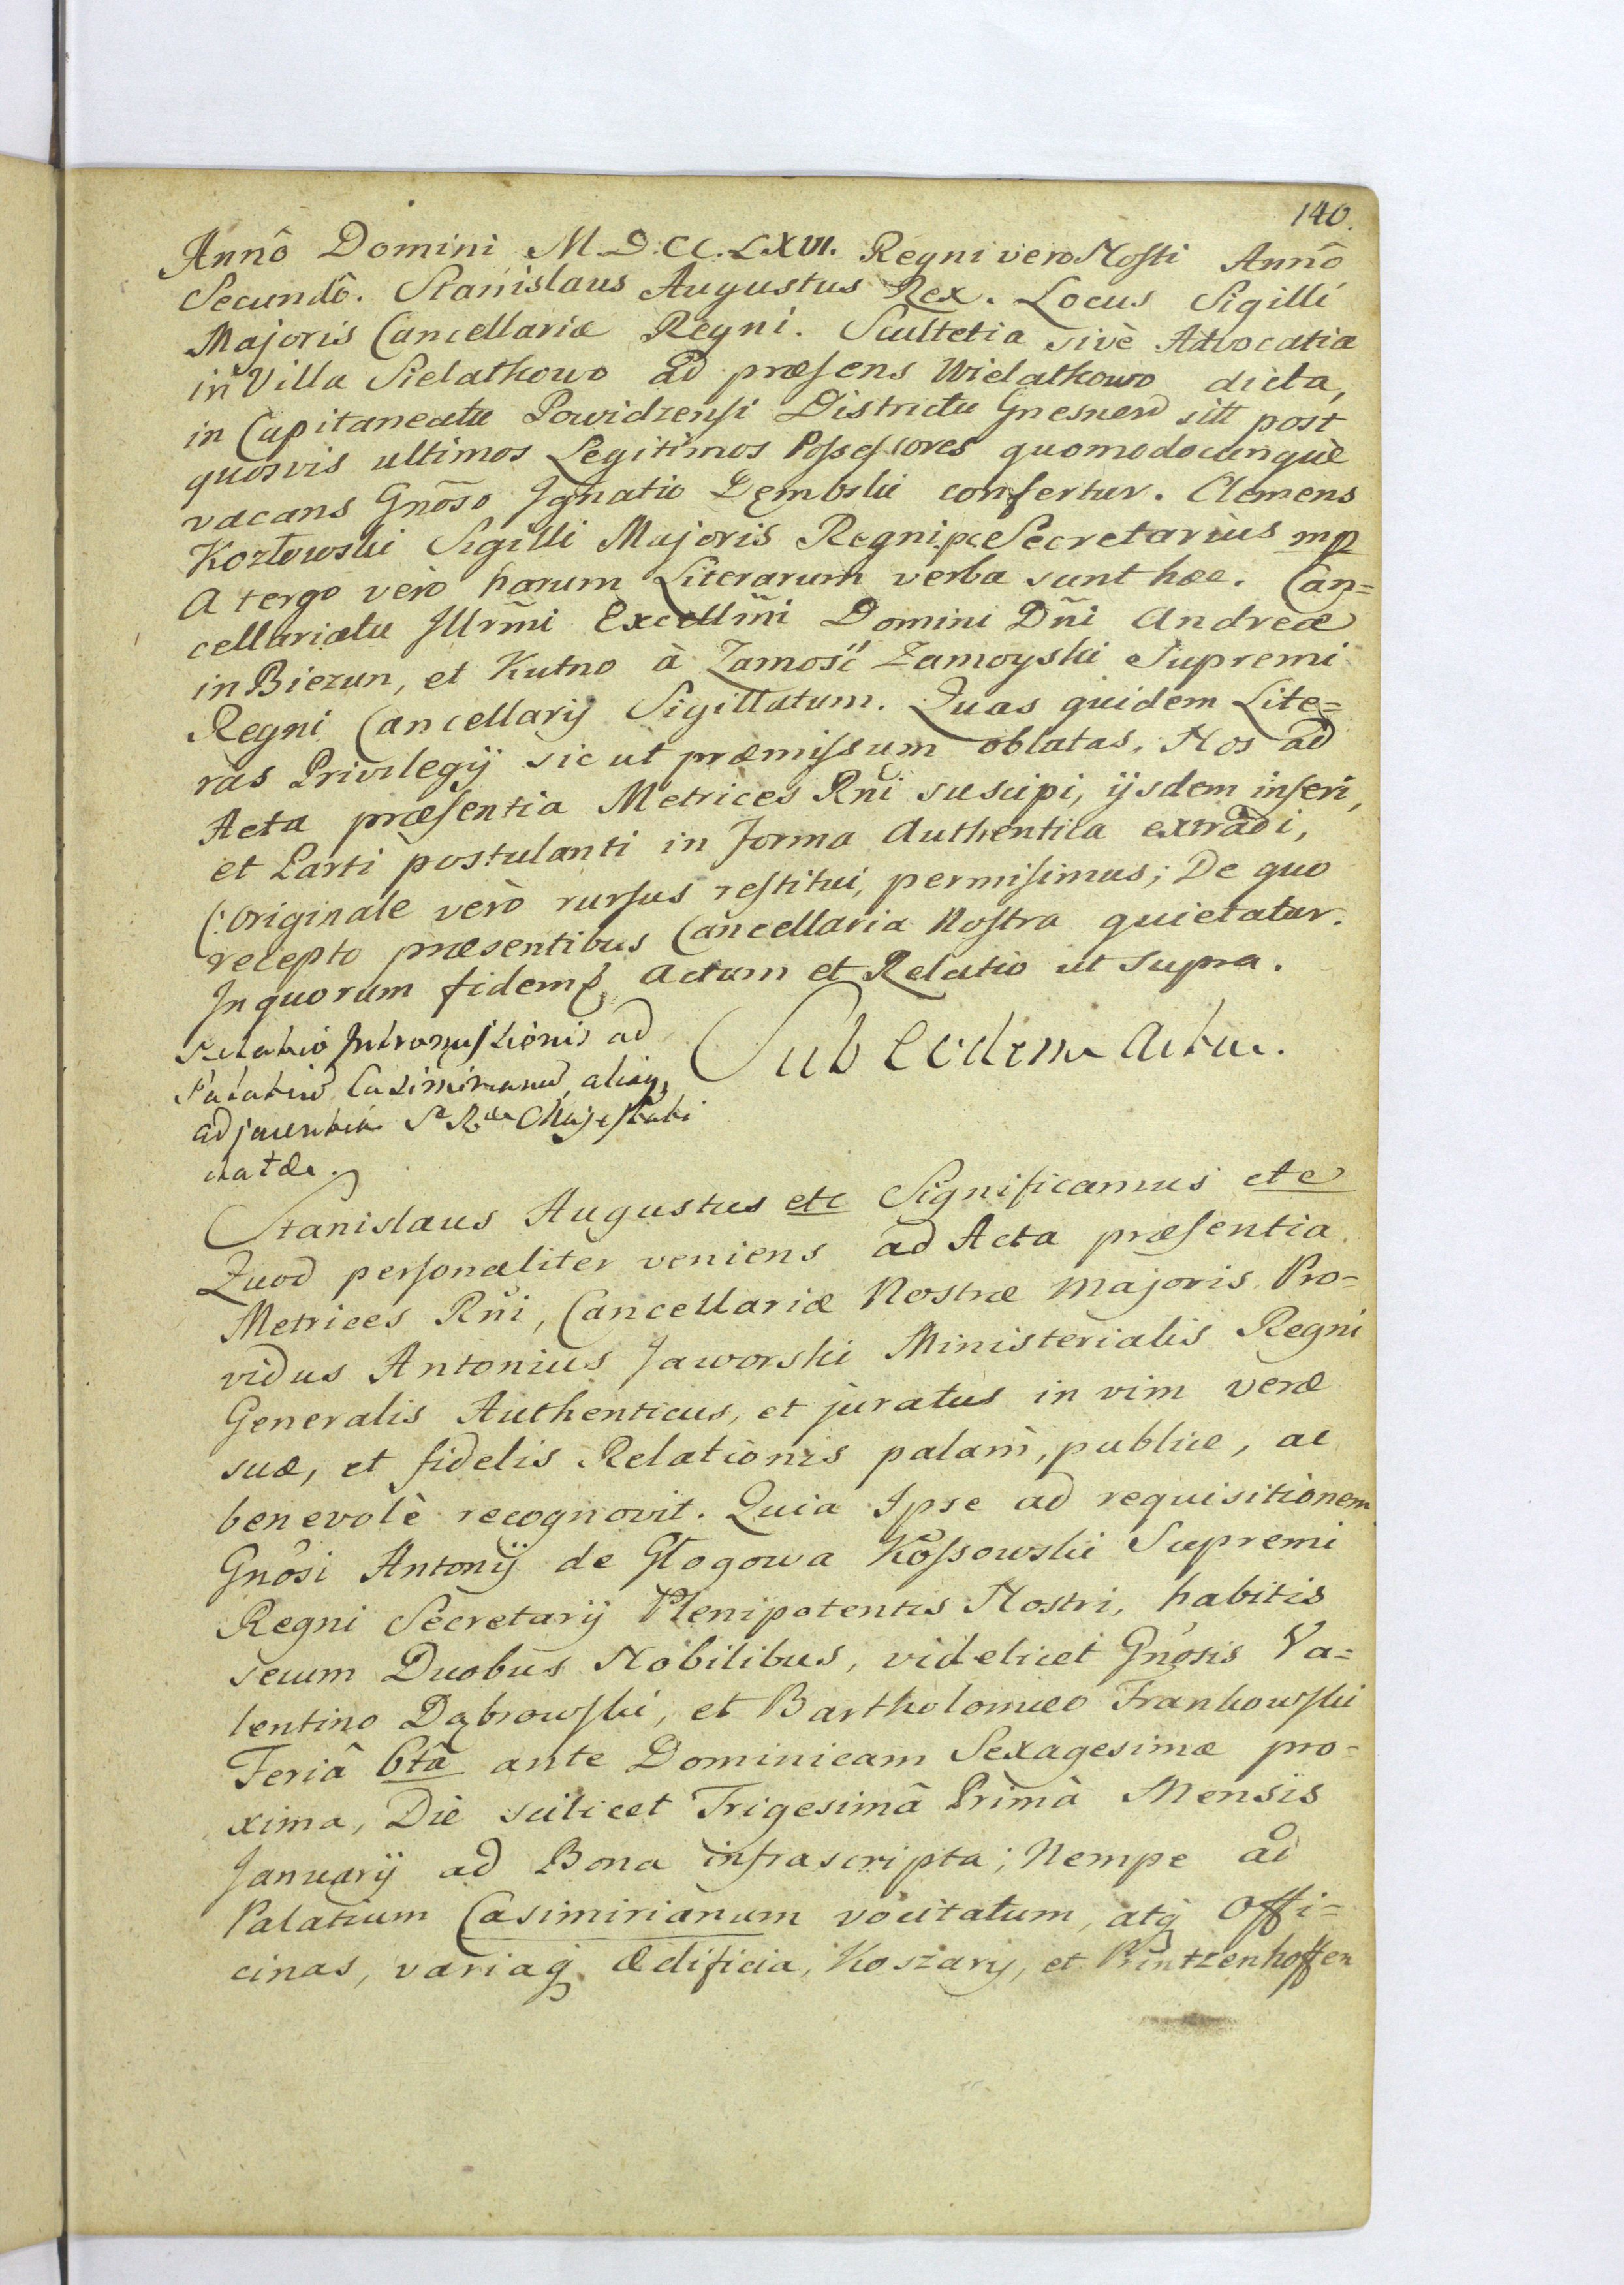 140.
Annô Domini M.D.CC.LXVI. Regni vero Nosti Annô
Secundô. Stanislaus Augustus Rex. Locus Sigilli
Majoris Cancellariæ Regni. Scultetia sivè Advocatia
in Villa Sielatkowo ad præsens Wielatkowo dicta,
in Capitaneatu Powidzensi Districtu Gnesnen sitt post
quosvis ultimos Legitimos Possessores quomodocunquè
vacans Gnõso Ignatio Dembski confertur. Clemens
Kozłowski Sigilli Majoris Regni Secretarius mp
A tergo verò harum Literarum verba sunt hæc. Can=
cellariatu Illrm̃i Excellm̃i Domini Dñi Andreæ
in Biezun, et Kutno à Zamość Zamoyski Supremi
Regni Cancellarij Sigillatum. Quas quidem Lite=
ras Privilegij sic ut præmissum oblatas, Nos ad
Acta præsentia Metrices Rñi suscipi, ijsdem inseri,
et Parti postulanti in forma Authentica extradi,
(: Originale verò rursus restitui, permisimus; De quo
recepto præsentibus Cancellaria Nostra quietatur.
In quorum fidem Actum et Relatio ut supra.
Relatio Intromissionis ad
Palatiũ Casimirianũ, aliaq,
adjacentia Sæ Ræ Majestati
datæ.
Sub eodem Actu.
Stanislaus Augustus etc Significamus etc
Quod personaliter veniens ad Acta præsentia
Metrices Rñi, Cancellariæ Nostræ Majoris, Pro=
vidus Antonius Jaworski Ministerialis Regni
Generalis Authenticus, et juratus in vim veræ
suæ, et fidelis Relationis palam, publice, ac
benevolè recognovit. Quia Ipse ad requisitionem
Gnôsi Antonij de Głogowa Kossowski Supremi
Regni Secretarij Plenipotentis Nostri, habitis
secum Duobus Nobilibus, videlicet Gnosis Va=
lentino Dąbrowski, et Bartholomæo Frankowski
Feriâ 6tâ ante Dominicam Sexagesimæ pro=
xima, Die scilicet Trigesimâ Primâ Mensis
Januarij ad Bona infrascripta; Nempe ad
Palatium Casimirianum vocitatum, atq Offi=
cinas, variaq ædificia, Koszary, et Printzenhoffen